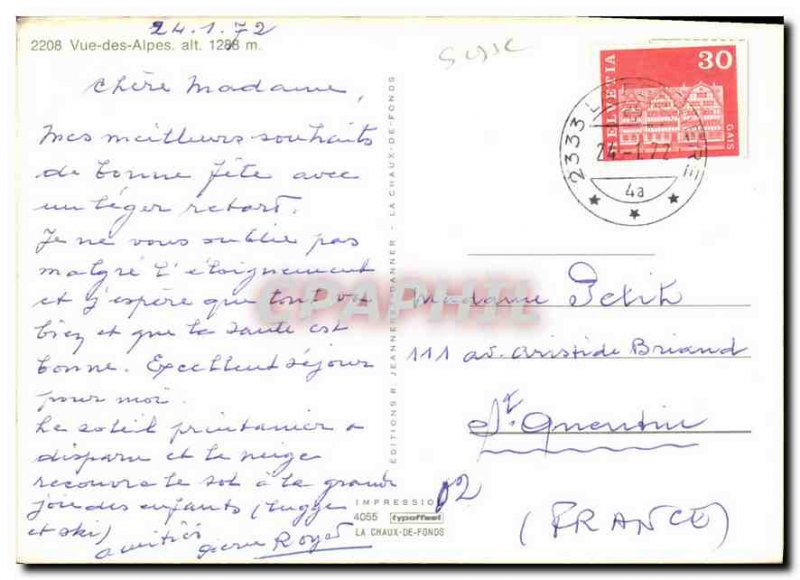 24.1.72
2208 Vue-des-Alpes. alt. 1288 m.
Chère Madame,
Mes meilleurs souhaits
de bonne fête avec
un léger retard.
Je ne vous oublie pas
malgré l'éloignement
et j'espère que tout va
bien et que la santé est
bonne. Excellent séjour
pour moi.
Le soleil printanier a
disparu et la neige
recouvre le sol à la grande
joie des enfants (luges
et ski)
amitiés
Pierre Royer
EDITIONS R. JEANNERET-DANNER - LA CHAUX-DE-FONDS
IMPRESSION
4055 typoffset
LA CHAUX-DE-FONDS
Suisse
HELVETIA
30
GAIS
2333
24-1.72
4a
CPAPHIL
Madame Petit
111 av. Aristide Briand
St Quentin
02
(FRANCE)